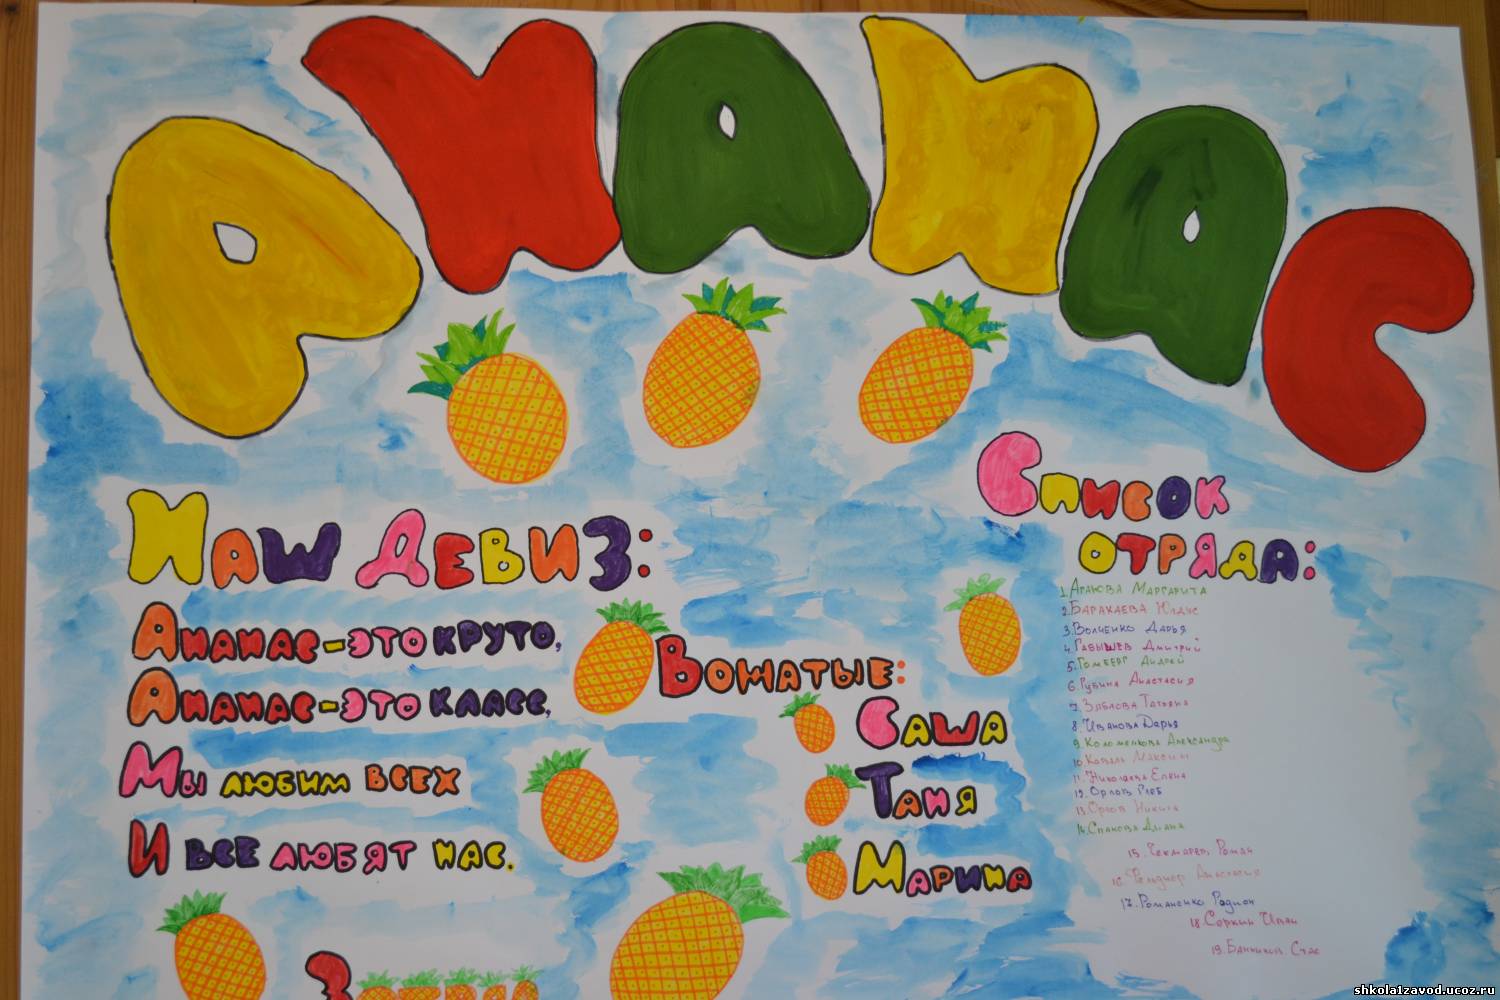 АНАНАС
НАШ ДЕВИЗ:
АНАНАС-ЭТО КРУТО,
АНАНАС-ЭТО КЛАСС,
МЫ ЛЮБИМ ВСЕХ
И ВСЕ ЛЮБЯТ НАС.
ВОЖАТЫЕ:
САША
ТАНЯ
МАРИНА
СПИСОК
ОТРЯДА:
1. Маргарита
2. Баракаева
3. Волченко Дарья
4. Гавышев Дмитрий
5. Гомберг Андрей
6. Рубина Анастасия
7. Зяблова Татьяна
8. Иванова Дарья
9. Коломенкова Александра
10. Коваль Максим
11. Николаева Елена
12. Орлов Глеб
13. Орлов Никита
14. Диана
15. Роман
16. Анастасия
17. Романенко Родион
18. Соркин Иван
19. Банников Стас
3
shkola1zavod.ucoz.ru